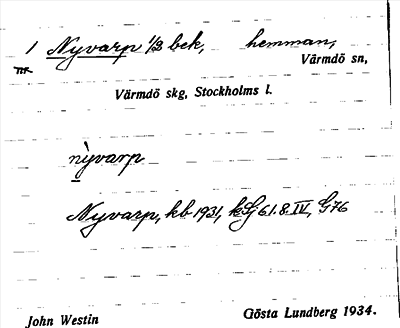 1 Nyvarp 1/3 bek, hemman,
Värmdö sn,
Värmdö skg, Stockholms l.
nỳvarp
Nyvarp, kb 1931, kSj 61.8.IV, G76
John Westin Gösta Lundberg 1934.